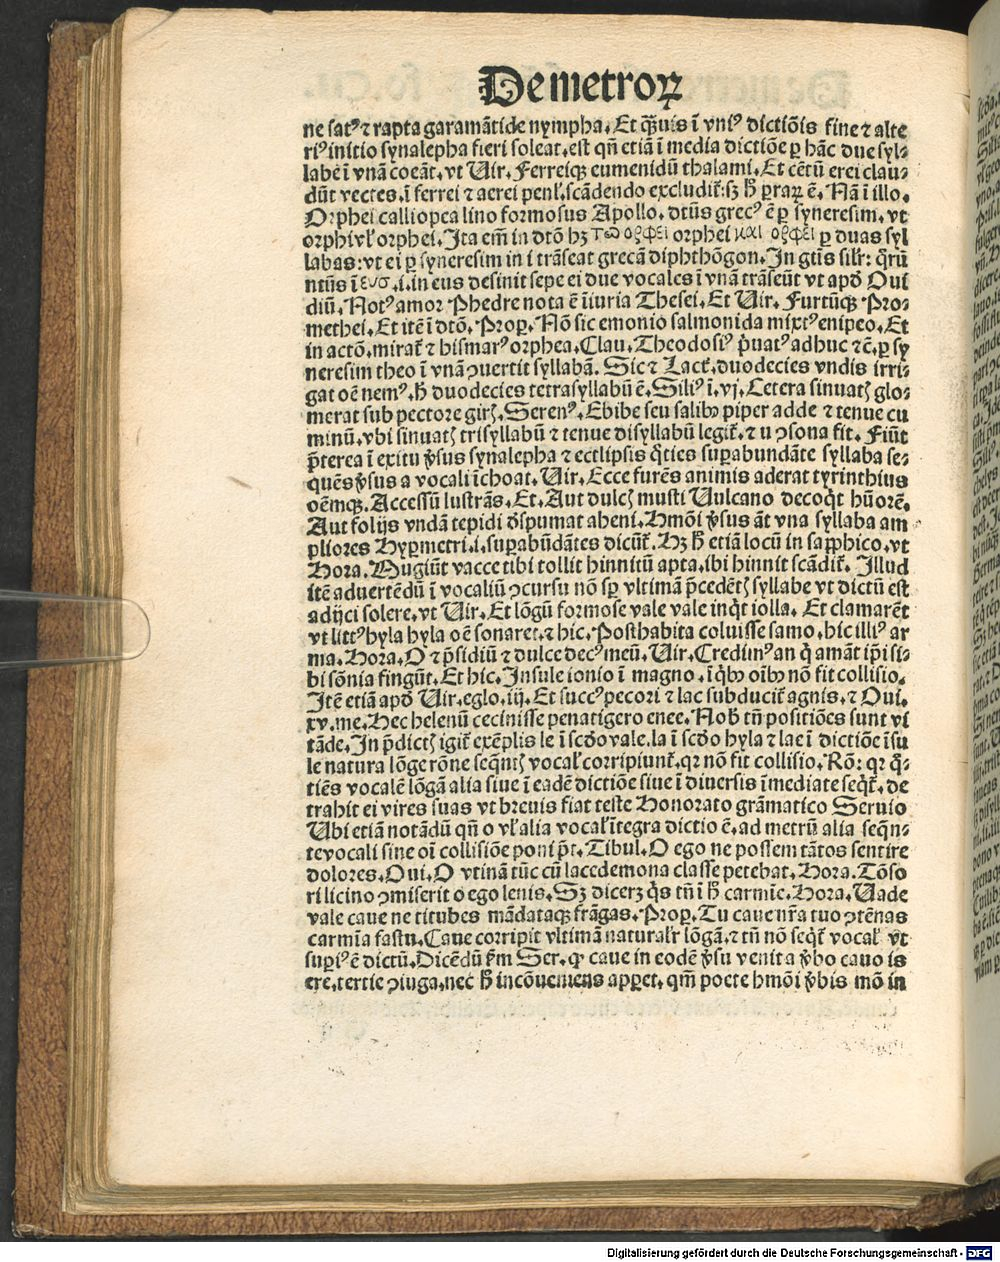 De metroꝝ
ne satꝰ ⁊ rapta garamātide nympha. Et qᷓuis ī vniꝰ dictiōis fine ⁊ alte
riꝰ initio synalepha fieri soleat. est qn̄ etiā ī media dictiōe ꝑ hāc due syl-
labe ī vnā coeāt. vt Uir. Ferreiqꝫ eumenidū thalami. Et cētū erei clau-
dūt vectes. ī ferrei ⁊ aerei penl̓. scādendo excludit᷑: sꝫ ħ ꝑ raꝝ ē. Nā ī illo.
Orphei calliopea lino formosus Apollo. dt̄us grecꝰ ē ꝑ syneresim. vt
orphi vl̓ orphei. Ita em̄ in dt̄o hꝫ τῶ ορφει orphei και ορφει ꝑ duas syl
labas: vt ei ꝑ syneresim in i trāseat grecā diphthōgon. In gt̄is silr̄: qr̄ū
nt̄us ī ευσ. i. in eus desinit sepe ei due vocales ī vnā trāseūt vt apđ Oui
diū. Notꝰ amor Phedre nota ē īiuria Thesei. Et Uir. Furtūqꝫ Pro-
methei. Et itē ī dt̄o. Proꝑ. Nō sic emonio salmonida mixtꝰ enipeo. Et
in actō. mirat᷑ ⁊ hismarꝰ orphea. Clau. Theodosiꝰ p̄uatꝰ adhuc ⁊c̄. ꝑ sy
neresim theo ī vnā ꝯuertit syllabā. Sic ⁊ Lact̄. duodecies vndis irri-
gat oē nemꝰ. ħ duodecies tetrasyllabū ē. Siliꝰ ī. vj. Cetera sinuatꝭ glo-
merat sub pectore girꝭ. Serenꝰ. Ebibe seu salibꝰ piper adde ⁊ tenue cu
minū. vbi sinuatꝭ trisyllabū ⁊ tenue disyllabū legit᷑. ⁊ u ꝯsona fit. Fiūt
p̄terea ī exitu ꝟsus synalepha ⁊ ectlipsis q̄ties suꝑabundāte syllaba se-
quēs ꝟsus a vocali īchoat. Uir. Ecce furēs animis aderat tyrinthius
oēmqꝫ. Accessū lustrās. Et. Aut dulcꝭ musti Uulcano decoqt̄ hūorē.
Aut folijs vndā tepidi đspumat aheni. Hmōi ꝟsus āt vna syllaba am
pliores Hyꝑmetri. i. suꝑabūdātes dicūt᷑. Hꝫ ħ etiā locū in sapphico. vt
Hora. Mugiūt vacce tibi tollit hinnitū apta. ibi hinnit scādit᷑. Illud
itē aduertēdū ī vocaliū ꝯcursu nō sꝑ vltimā p̄cedētꝭ syllabe vt dictū est
adijci solere. vt Uir. Et lōgū formose vale vale inqt̄ iolla. Et clamarēt
vt littꝰ hyla hyla oē sonaret. ⁊ hic. Posthabita coluisse samo. hic illiꝰ ar
ma. Hora. O ⁊ p̄sidiū ⁊ dulce decꝰ meū. Uir. Credimꝰ an q̄ amāt ip̄i si-
bi sōnia fingūt. Et hic. Insule ionio ī magno. ī qb̓ꝰ oīb̓ꝰ nō fit collisio.
Itē etiā apđ Uir. eglo. iij. Et succꝰ pecori ⁊ lac subducit᷑ agnis. ⁊ Oui.
xv. me. Hec helenū cecinisse penatigero enee. Nob̄ tn̄ positiōes sunt vi
tāde. In p̄dictꝭ igit᷑ exēplis le ī scđo vale. la ī scđo hyla ⁊ lae ī dictiōe īsu
le natura lōge rōne seqn̄tꝭ vocal̓ corripiunt᷑. qꝛ nō fit collisio. Rō: qꝛ q̄-
tiēs vocalē lōgā alia siue ī eadē dictiōe siue ī diuersis īmediate seqt᷑. de
trahit ei vires suas vt breuis fiat teste Honorato grāmatico Seruio
Ubi etiā notādū qn̄ o vl̓ alia vocal̓ ītegra dictio ē. ad metrū alia seqn̄-
te vocali sine oī collisiōe poni p̄t. Tibul. O ego ne possem tātos sentire
dolores. Oui. O vtinā tūc cū lacedemona classe petebat. Hora. Tōso
ri licino ꝯmiserit o ego lenis. Sꝫ dicerꝫ q̄s tn̄ ī ħ carmīe. Hora. Uade
vale caue ne titubes mādataqꝫ frāgas. Proꝑ. Tu caue nr̄a tuo ꝯtēnas
carmīa fastu. Caue corripit vltimā naturalr̄ lōgā. ⁊ tn̄ nō seqt᷑ vocal̓ vt
suꝑiꝰ ē dictū. Dicēdū ẜm Ser. ꝙ caue in eodē ꝟsu venit a ꝟbo cauo is
ere. tertie ꝯiuga. nec ħ incōueniens apꝑet. qm̄ poete hmōi ꝟbis mō in
Digitalisierung gefördert durch die Deutsche Forschungsgemeinschaft - DFG